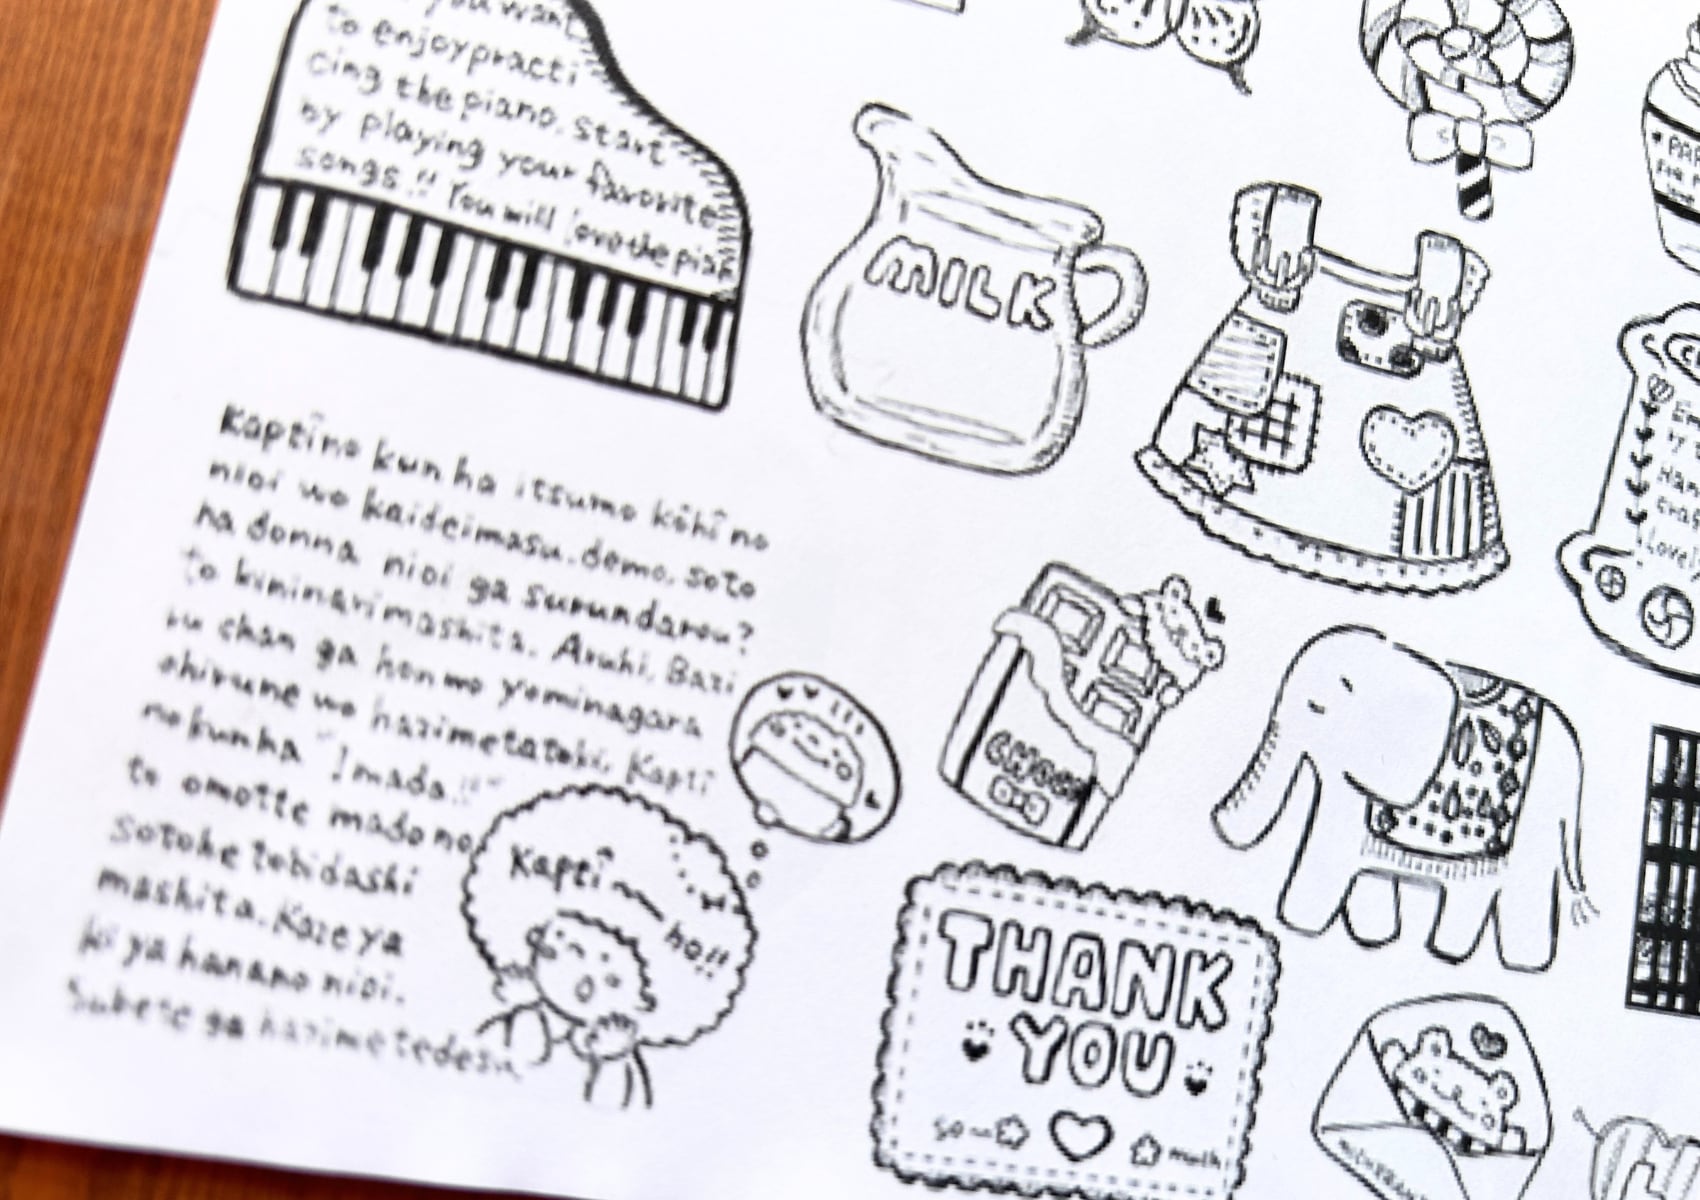 you want
to enjoy practi
cing the piano, start
by playing your favorite
songs!! You will love the pian
MILK
Kaptîno kun ha itsumo kôhî no
nioi wo kaideimasu. demo, soto
ha donna nioi ga surundarou?
to kininarimashita. Aruhi, Bazi
ru chan ga hon wo yominagara
ohirune wo hazimetatoki, Kaptî
no kun ha "Imada!!"
to omotte mado no
sotohe tobidashi
mashita. Kaze ya
ki ya hana no nioi.
Subete ga hazimetedesu
Kaptî〜
ho!!
CHOCO
THANK
YOU
so
much